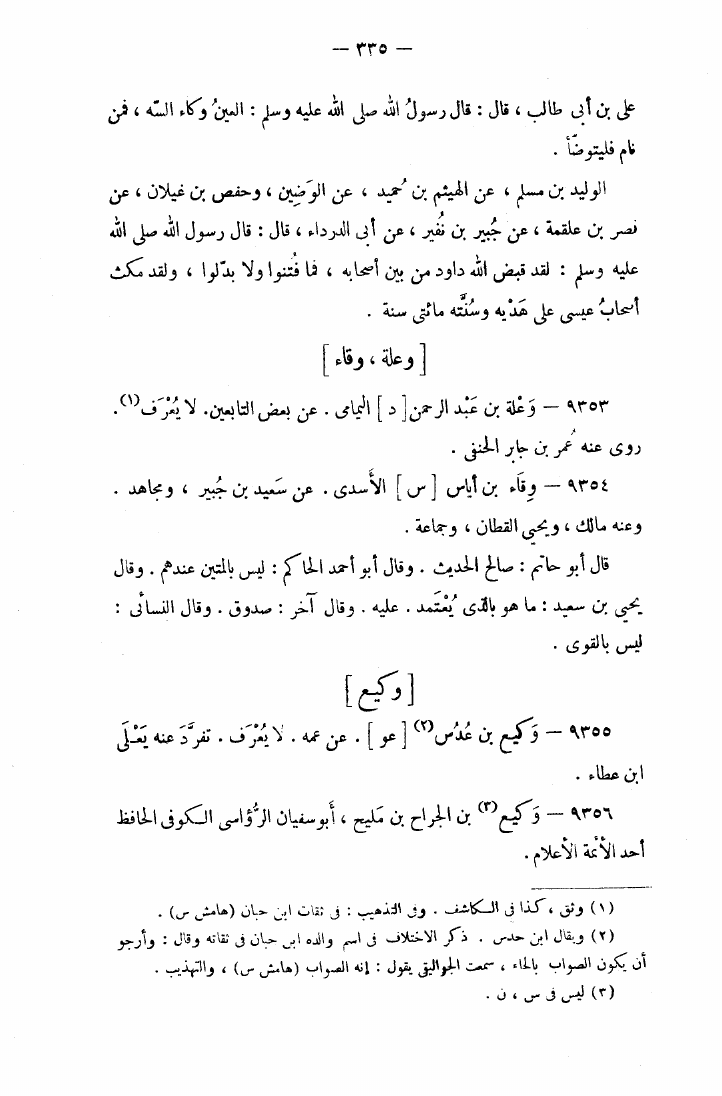 — ٣٣٥ —
على بن أبى طالب ، قال : قال رسولُ الله صلى الله عليه وسلم : العينُ وكاء السَّه ، فمن
نام فليتوضّأ .
الوليد بن مسلم ، عن الهيثم بن حُميد ، عن الوَضِين ، وحفص بن غيلان ، عن
نصر بن علقمة ، عن جُبير بن نُفير ، عن أبى الدرداء ، قال : قال رسول الله صلى الله
عليه وسلم : لقد قبض الله داود من بين أصحابه ، فما فُتنوا ولا بدّلوا ، ولقد مكث
أصحابُ عيسى على هَدْيه وسُنَّته مائتى سنة .
[ وعلة ، وقاء ]
٩٣٥٣ — وَعْلة بن عَبْد الرحمن [ د ] اليمامى . عن بعض التابعين. لا يُعْرَف(١).
روى عنه عُمر بن جابر الحنفى .
٩٣٥٤ — وِقَاء بن أياس [ س ] الأَسدى . عن سَعيد بن جُبير ، ومجاهد .
وعنه مالك ، ويحيى القطان ، وجماعة .
قال أبو حاتم : صالح الحديث . وقال أبو أحمد الحاكم : ليس بالمتين عندهم . وقال
يحيى بن سعيد : ما هو بالذى يُعْتَمد . عليه . وقال آخر : صدوق . وقال النسائى :
ليس بالقوى .
[ وكيع ]
٩٣٥٥ — وَكيع بن عُدُس(٢) [ عو ] . عن عمه . لا يُعْرَف . تفرَّدَ عنه يَعْلَى
ابن عطاء .
٩٣٥٦ — وَكيع(٣) بن الجراح بن مَليح ، أَبو سفيان الرُّؤاسى الكوفى الحافظ
أحد الأئمة الأعلام .
(١) وثق ، كذا فى الكاشف . وفى التذهيب : فى ثقات ابن حبان (هامش س) .
(٢) ويقال ابن حدس . ذكر الاختلاف فى اسم والده ابن حبان فى ثقاته وقال : وأرجو
أن يكون الصواب بالحاء ، سمعت الجواليقى يقول : إنه الصواب (هامش س) ، والتهذيب .
(٣) ليس فى س ، ن .